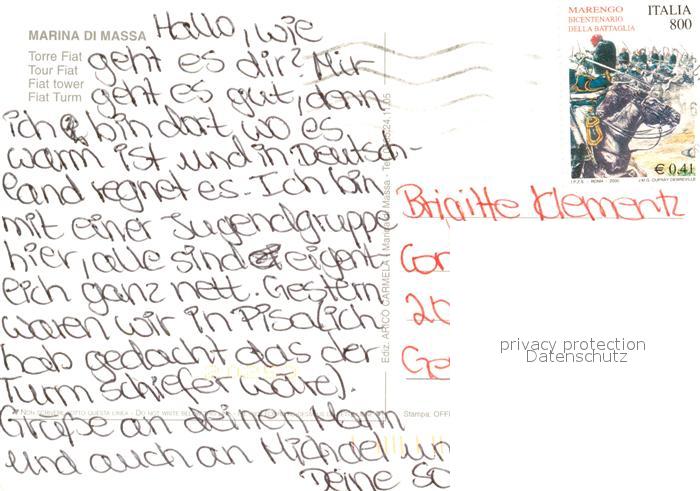 MARINA DI MASSA
Torre Fiat
Tour Fiat
Fiat tower
Fiat Turm
Hallo, wie
geht es dir? Mir
geht es gut, denn
ich bin dort, wo es
warm ist und in Deutsch-
land regnet es. Ich bin
mit einer Jugendgruppe
hier, alle sind eigent
lich ganz nett. Gestern
waren wir in Pisa (ich
hab gedacht das der
Turm schiefer wäre).
Grüße an deinen Mann
und auch an Michael un
Deine
Ediz. ARICO CARMELA - Marina di Massa - Tel.
MARENGO
BICENTENARIO
DELLA BATTAGLIA
ITALIA
800
€ 0,41
I.P.Z.S. - ROMA - 2000
Brigitte Klementz
Cor
20
Ge
privacy protection
Datenschutz
NON SCRIVERE SOTTO QUESTA LINEA - DO NOT WRITE BELOW
Stampa: OFF